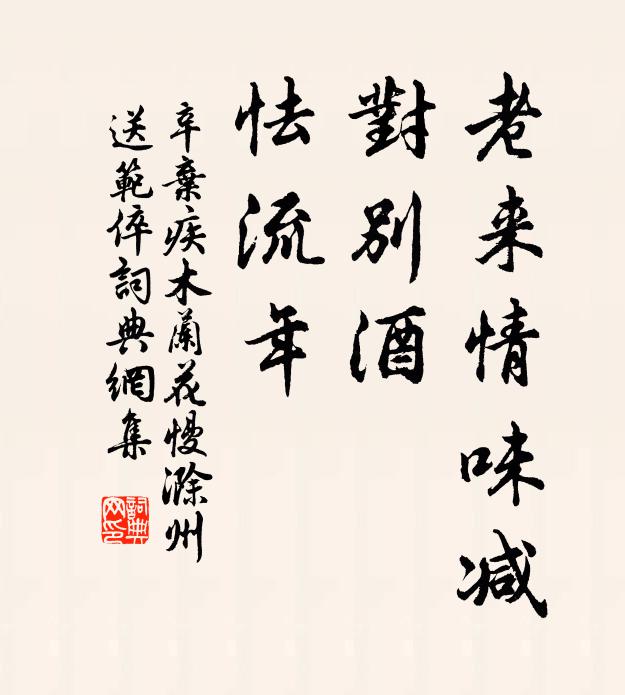 老来情味减
對别酒
怯流年
辛棄疾木蘭花慢滁州
送範倅詞典網集
詞典
网印